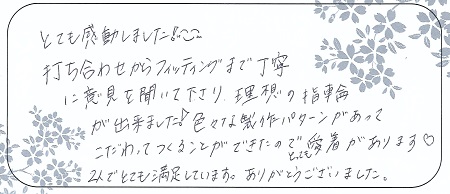 とても感動しました!!
打ち合わせからフィッティングまで丁寧
に意見を聞いて下さり、理想の指輪
が出来ました!色々な製作パターンがあって
こだわってつくることができたのでとっても愛着があります♡
2人でとても満足しています。ありがとうございました。